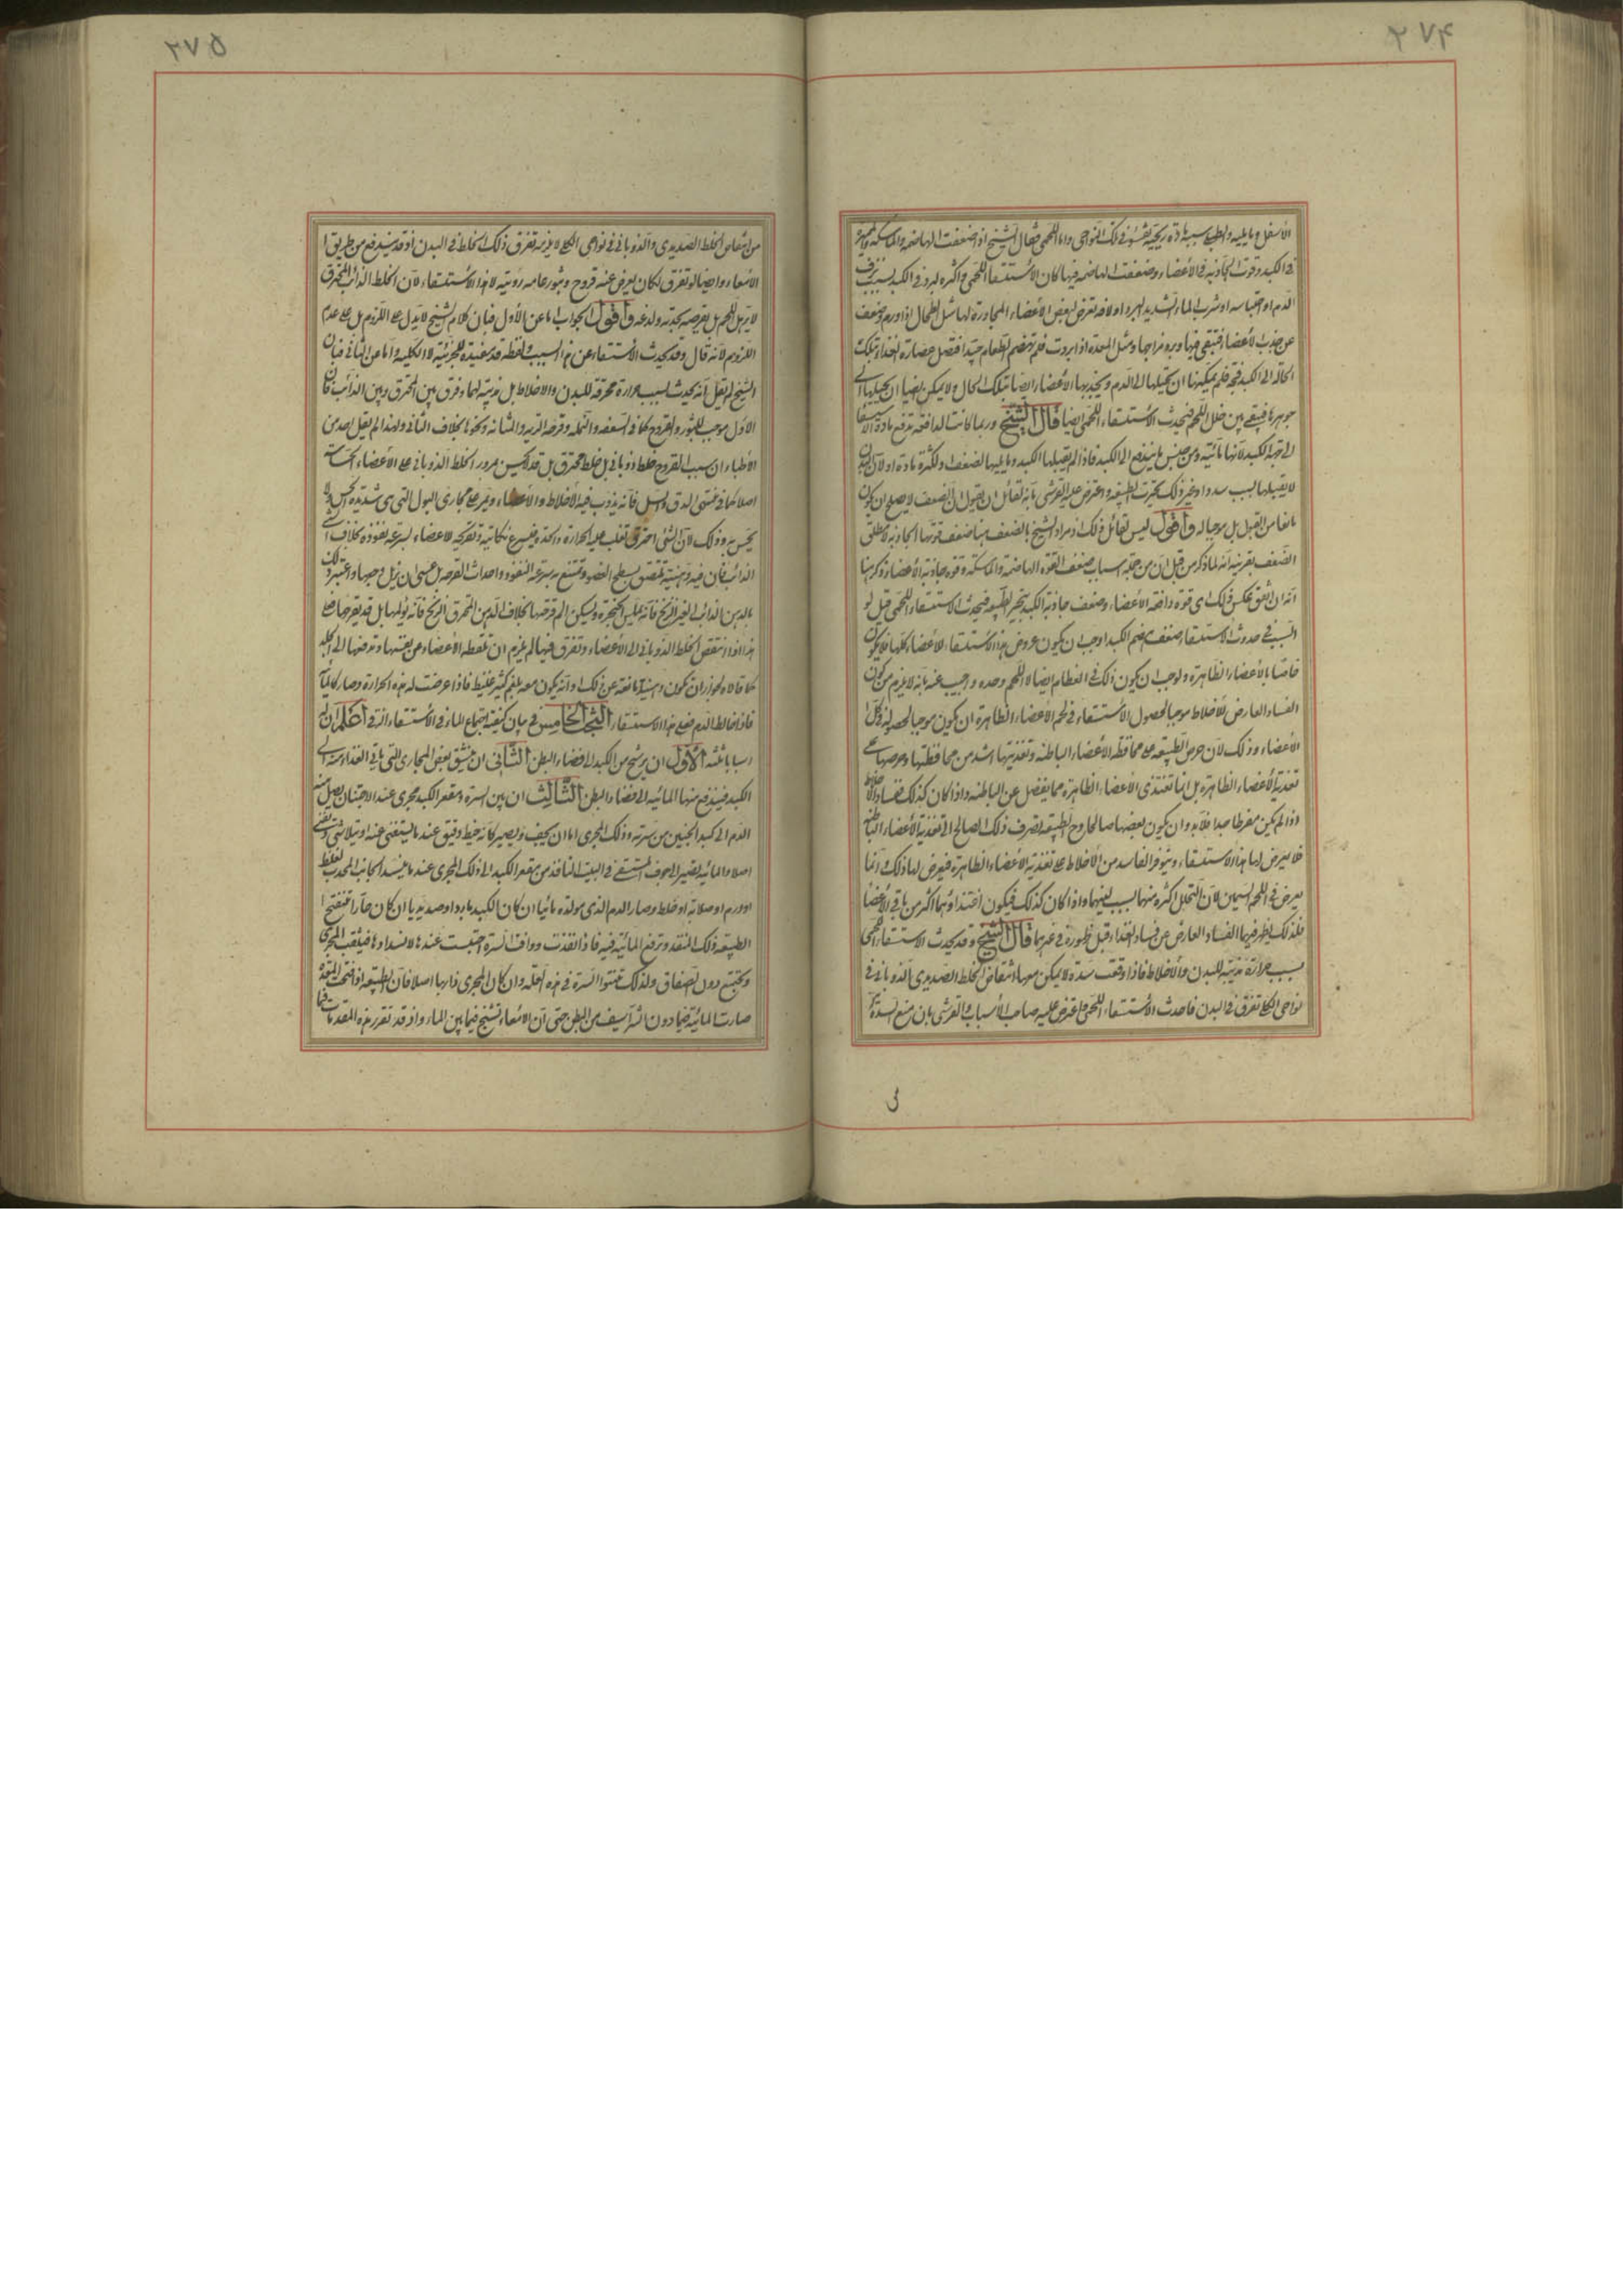 ۲۷۴
الأسفل وما يليه والطبلى سببه مادة ريحية تفشو في تلك النواحى واما اللحمى فقال الشيخ اذا ضعفت الهاضمة والماسكة والمميزة
في الكبد وقوت الجاذبة في الأعضاء وضعفت الهاضمة فيها كان الأستسقاء اللحمى واكثره لبرد في الكبد بسبب نزف
الدم او احتباسه او شرب الماء الشديد البرد او لآفة تعرض لبعض الأعضاء المجاورة لها مثل الطحال اذا ورم وضعف
عن جذب الأعضاء فيتقى فيها ويبرد مزاجها ومثل المعدة اذا بردت فلم تهضم الطعام جيدا فتصل عصارة الغذاء وتلك
الحالة الى الكبد فجة فلم يمكنها ان تحيلها الى الدم ويجذبها الأعضاء ايضا بتلك الحال ولا يمكن ايضا ان تحيلها الى
جوهرها فيبقى بين خلل اللحم فيحدث الأستسقاء اللحمى ايضا قال الشيخ وربما كانت الدافعة تدفع مادة الأستسقاء
الى جهة الكبد لأنها مائية ومن جنس ما يندفع الى الكبد فاذا لم يقبلها الكبد وما يليها لضعف ولكثرة مادة او لأن البدن
لا يقبلها بسبب سدد او غير ذلك تحيرت الطبيعة واعترض عليه القرشى بأنه لقائل ان يقول ان الضعف لا يصلح ان يكون
مانعا من القبول بل موجبا له واقول ليس لقائل ذلك اذ مراد الشيخ بالضعف هنا ضعف قوتها الجاذبة لا مطلق
الضعف بقرينة انه لما ذكر من قبل ان من جملة اسباب ضعف القوة الهاضمة والماسكة وقوة جاذبة الأعضاء ذكر هنا
انه ان اتفق عكس ذلك اى قوة دافعة الأعضاء وضعف جاذبة الكبد يتحير الطبيعة فيحدث الاستسقاء اللحمى قيل لو
السبب في حدوث الأستسقاء ضعف هضم الكبد لوجب ان يكون عروض هذا الاستسقاء للأعضاء كلها فلا يكون
خاصا بالأعضاء الظاهرة ولوجب ان يكون ذلك في العظام ايضا لا اللحم وحده واجيب عنه بانه لا يلزم من كون
الفساد العارض للأخلاط موجبا لحصول الأستسقاء في لحم الأعضاء الظاهرة ان يكون موجبا لحصوله في كل
الأعضاء وذلك لان حرص الطبيعة على محافظة الأعضاء الباطنة وتغذيتها اشد من محافظتها وحرصها على
تغذية الأعضاء الظاهرة بل انما تغتذى الأعضاء الظاهرة مما يفضل عن الباطنة واذا كان كذلك ففساد الأخلاط
اذا لم يكن مفرطا جدا فلا بد وان يكون بعضها صالحا وح الطبيعة تصرف ذلك الصالح الى تغذية الأعضاء الباطنة
فلا يعرض لها هذا الاستسقاء ويتوفر الفاسد من الأخلاط على تغذية الأعضاء الظاهرة فيعرض لها ذلك وانما
يعرض في اللحم السمين لان التحلل اكثره منهما لسبب لينهما واذا كان كذلك فيكون اغتذاؤهما اكثر من باقى الأعضاء
فلذلك يظهر فيهما الفساد العارض عن فساد الغذاء قبل ظهوره في غيرهما قال الشيخ وقد يحدث الاستسقاء اللحمى
بسبب حرارة مذيبة للبدن والأخلاط فاذا وقعت سدة لا يمكن معها انتفاض الخلط الصديدى الذوبانى في
نواحى الكلى تفرق في البدن فاحدث الأستسقاء اللحمى واعترض عليه صاحب الأسباب والقرشى بان منع السدة
ى
۲۷۵
من انتفاض الخلط الصديدى والذوبانى في نواحى الكلى لا يلزمه تفرق ذلك الخلط في البدن اذ قد يندفع من طريق ا
الأمعاء وايضا لو تفرق لكان يعرض عنه قروح وبثور عامة ردئية لا هذا الأستسقاء لأن الخلط الذائب المحترق
لا يرهل اللحم بل يقرصه بحدته ولدعه واقول الجواب اما عن الأول فبان كلام الشيخ لا يدل على اللزوم بل على عدم
اللزوم لأنه قال وقد يحدث الأستسقاء عن هذا السبب ولفظة قد مفيدة للجزئية لا الكلية واما عن الثانى فبان
الشيخ لم يقل انه يحدث بسبب حرارة محرقة للبدن والاخلاط بل مذيبة لهما وفرق بين المحترق وبين الذائب فان
الأول موجب للبثور والقروح كما في السعفة والنملة وقرحة الرية والمثانة ونحوها بخلاف الثانى ولهذا لم يقل احد من
الأطباء ان سبب القروح خلط ذوبانى بل خلط محترق بل قد لا يحس بمرور الخلط الذوبانى على الأعضاء الحساسة
اصلا كما في منتهى الدق والسل فانه يذوب فيه الأخلاط والأعضاء ويمر على مجارى البول التى هى شديدة الحس ولا
يحس به وذلك لأن الشئ احترق تغلب عليه الحرارة والحدة فيسرع نكايته وتفرقه للاعضاء لسرعة نفوذه بخلاف الشئ
الذائب فان فيه دهنية تلتصق بسطح العضو وتمنع به سرعة النفوذ واحداث القرحة بل عسى ان يزيل وجعها واعتبر ذلك
بالدهن الذائب الغير الزنخ فانه يملس الحنجرة ويسكن الم قرحتها بخلاف الدهن المحترق الزنخ فانه يؤلمها بل قد يقرحها على
هذا اذا انتقض الخلط الذوبانى الى الأعضاء وتفرق فيها لم يلزم ان تلفظه الأعضاء عن نفسها وتدفعها الى الجلد
كما قالاه لجواز ان يكون دهنيته مانعة عن ذلك او انه يكون معه بلغم كثير غليظ فاذا عرضت له هذه الحرارة وصار كالماء
فاذا خالط الدم فعل هذا الاستسقاء البحث الخامس في بيان كيفية اجتماع الماء في الأستسقاء الزقى اعلم ان له
اسبابا ثلثة الأول ان يرشح من الكبد الى فضاء البطن الثانى ان ينشق بعض المجارى التى ياتى الغذاء منه الى
الكبد فيندفع منها المائية الى فضاء البطن الثالث ان بين السرة ومقعر الكبد مجرى عند الاجتنان يصل منه
الدم الى كبد الجنين من سرته وذلك المجرى اما ان يجف ويصير كانه خيط دقيق عند ما يستغنى عنه او يتلاشى ويفنى
اصلا والمائية تصير الى جوف المستسقى في البيت النافذ من مقعر الكبد الى ذلك المجرى عند ما ينسد الجانب المحدب لغلظ
او ورم او صلابة او خلط وصار الدم الذى مولده مائيا ان كان الكبد باردا وصديديا ان كان حارا فتفتح ا
الطبيعة ذلك المنفذ وتدفع المائية فيه فاذا نفذت ووافت السرة احتبست عندها لانسدادها فيثقب المجرى
وتجتمع دون الصفاق ولذلك تنتو السرة في هذه العلة وان كان المجرى ذاهبا اصلا فان الطبيعة اذا فتحت المنفذ
صارت المائية فيما دون الشراسيف من البطن حتى ان الأمعاء تسبح فيما بين الماء واذ قد تقرر هذه المقدمات فما